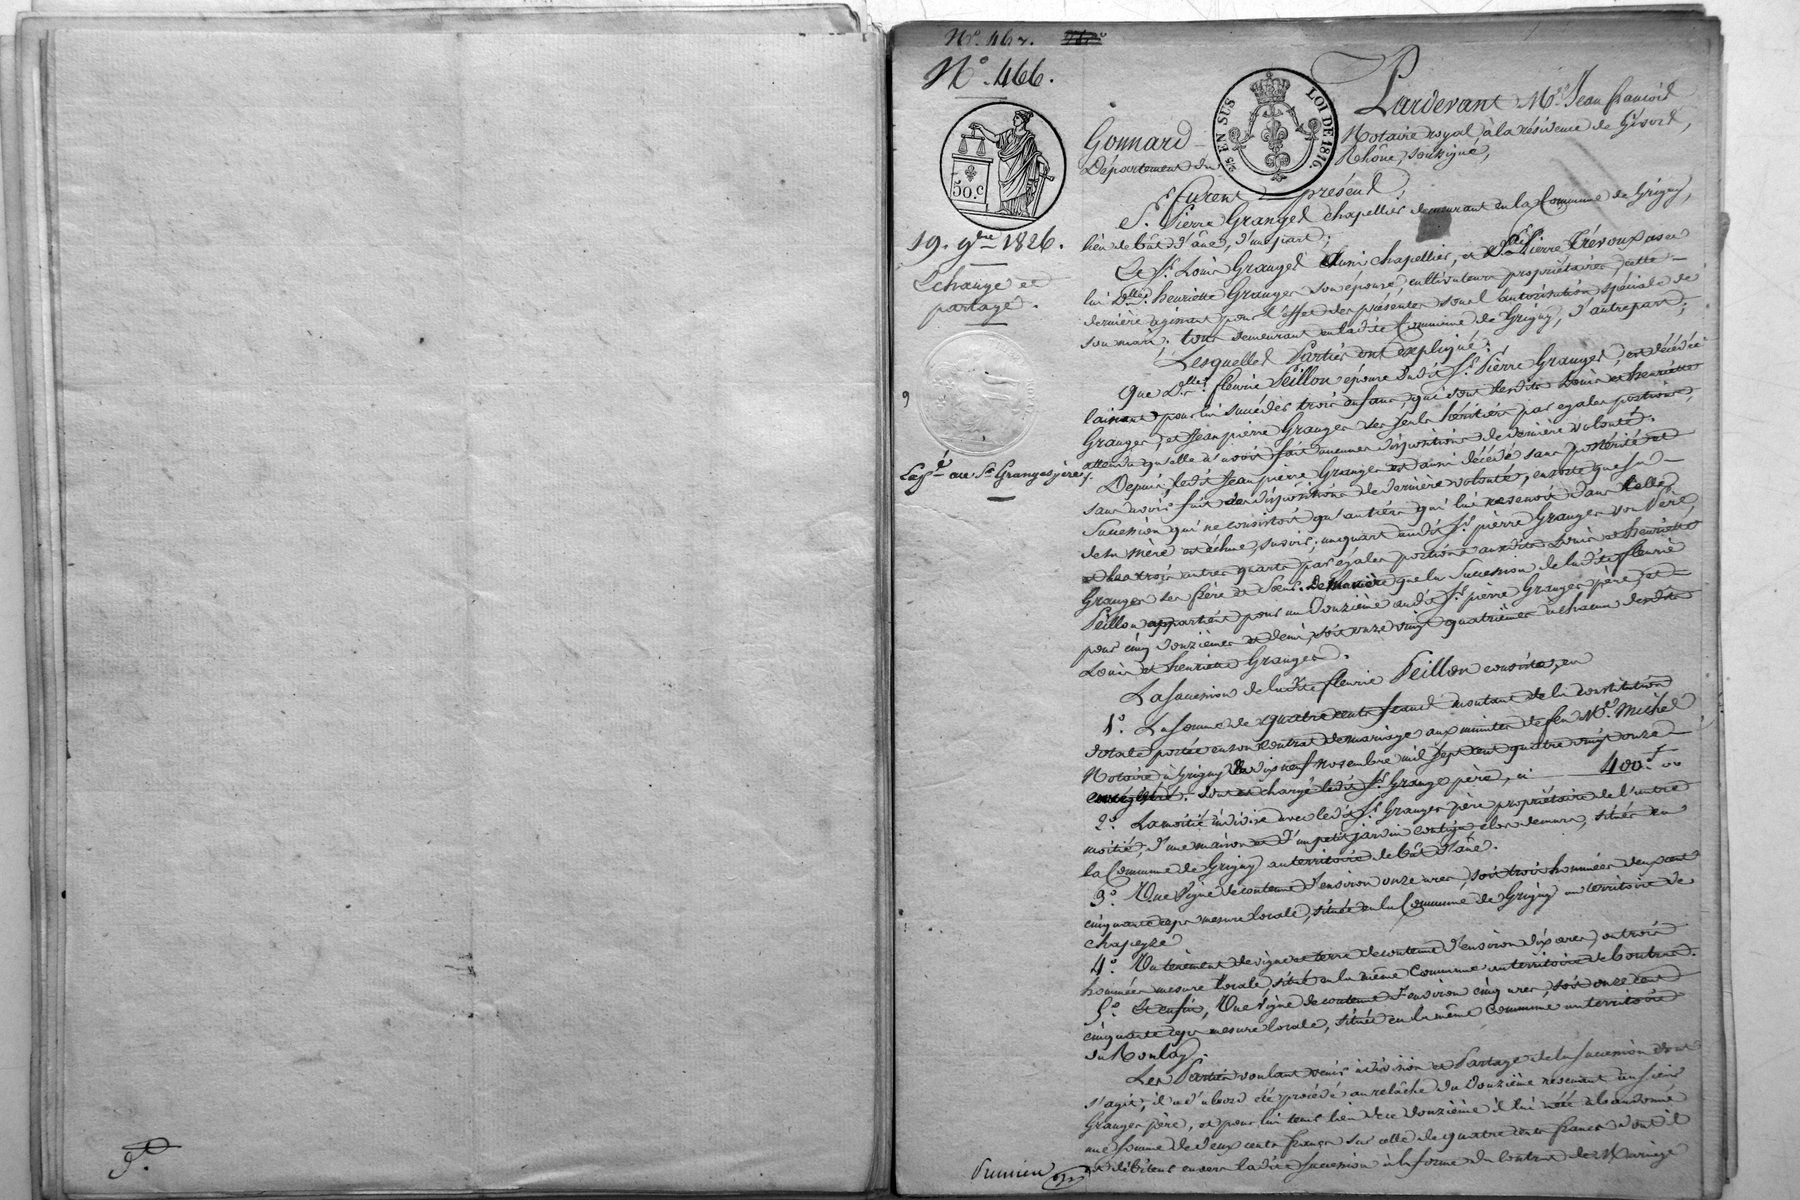 N.° 467.
N.° 466.
50.c
2/5 EN SUS
LOI DE 1816.
19. 9bre 1826.
Echange et
partage.
Exp.é au S.r Granger père.
Pardevant M.e Jean françois
Gonnard Notaire royal, à la résidence de Givors,
Département du Rhône, soussigné,
Furent présens,
S.r Pierre Granger chapellier demeurant en la Commune de Grigny,
lieu de bût d'âne, d'une part;
Et S.r Louis Granger aussi chapellier, et S.r Pierre Trévoux avec
lui D.lle henriette Granger son épouse, cultivateurs propriétaires, cette
dernière agissant pour l'effet des présentes sous l'autorisation spéciale de
son mari; tous demeurant en ladite Commune de Grigny, d'autre part;
Lesquelles Parties ont expliqué:
Que D.lle fleurie Peillon épouse dudit S.r Pierre Granger, est décédée
laissant pour lui succéder trois enfans, qui sont lesdits Louis et henriette
Granger, et Jean pierre Granger ses seuls héritiers par égales portions,
attendu qu'elle n'avoit fait aucunes dispositions de dernière volonté.
Depuis, ledit Jean pierre Granger est aussi décédé sans postérité et
sans avoir fait des dispositions de dernière volonté, ensorte que sa
Succession qui ne consistoit qu'au tiers qui lui revenoit dans celle
de sa mère est échue, savoir; un quart audit S.r pierre Granger son Père,
et les trois autres quarts par égales portions auxdits Louis et henriette
Granger ses frère et sœur. De Manière que la Succession de ladite fleurie
Peillon appartient pour un Douzième audit S.r pierre Granger père, et
pour cinq douzièmes et demi, soit onze vingt quatrièmes à chacun desdits
Louis et henriette Granger.
La succession de ladite fleurie Peillon consiste, en
1.° La somme de quatre cents francs montant de la constitution
dotale portée en son Contrat de mariage aux minutes de feu M.e Michel
Notaire à Grigny du dix neuf novembre mil sept cent quatre vingt onze
dont est chargé ledit S.r Granger père, ci 400.f 00
2.° La moitié indivise avec ledit S.r Granger père propriétaire de l'autre
moitié, d'une maison et d'un petit jardin contigu clos de murs, situés en
la Commune de Grigny au territoire de bût d'âne.
3.° Une Vigne de contenue d'environ onze ares, soit trois hommées deux cent
cinquante ceps mesure locale, située en la Commune de Grigny au territoire de
chapezé
4.° Un tènement de vigne et terre de contenue d'environ dix ares, ou trois
hommées mesure locale, situé en la même Commune au territoire de
5.° Et enfin, Une Vigne de contenue d'environ cinq ares, soit onze cent
cinquante ceps mesure locale, située en la même Commune au territoire
du Boulay.
Les Parties voulant venir à division et Partage de la succession dont
s'agit; il a d'abord été procédé au relâche du Douzième revenant au sieur
Granger père, et pour lui tenir lieu de ce douzième il lui a été abandonné
une somme de deux cents francs sur celle de quatre cents francs dont il
est débiteur envers ladite succession à la forme du Contrat de Mariage